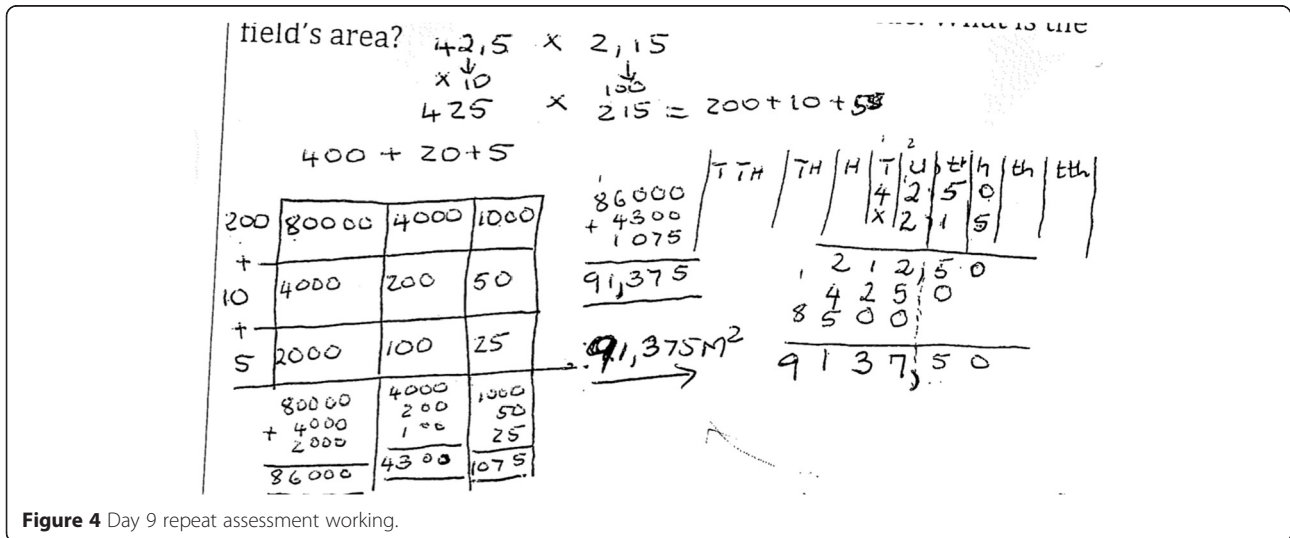 field's area? 42,5 × 2,15
What is the
↓ ↓
×10 100
425 × 215 = 200+10+5
400 + 20+5
200 80000 4000 1000
+
10 4000 200 50
+
5 2000 100 25
80000 4000 1000
+ 4000 200 50
2000 100 25
86000 4300 1075
1
86000
+ 4300
1075
91,375
91,375M²
1 2
T TH TH H T U , th h th tth
4 2 5 0
× 2 1 5
2 1 2,5 0
1 4 2 5 0
8 5 0 0
9 1 3 7,5 0
Figure 4 Day 9 repeat assessment working.